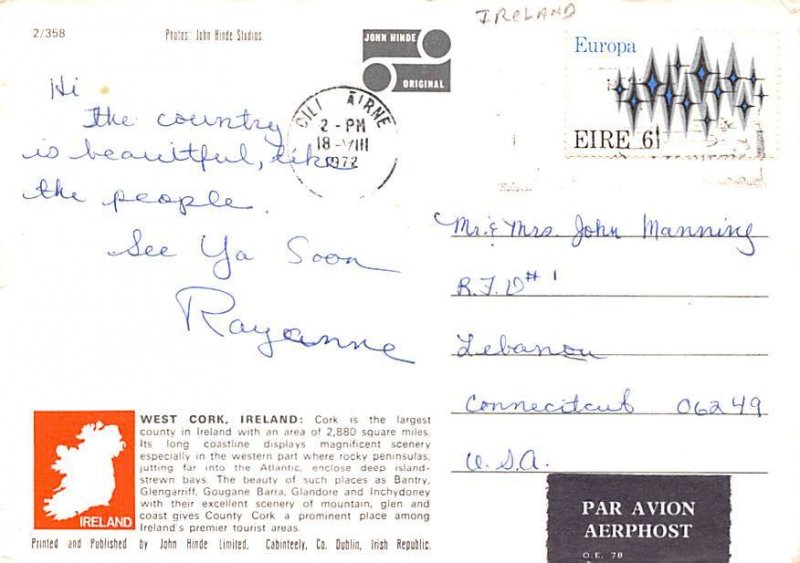 IRELAND
2/358
Photos: John Hinde Studios
JOHN HINDE
ORIGINAL
Europa
EIRE 6½
CILL AIRNE
2-PM
18-VIII
1972
Hi
The country
is beautiful, like
the people.
See Ya Soon
Rayanne
Mr. & Mrs. John Manning
R.F.D #1
Lebanon
Connecticut 06249
U.S.A.
WEST CORK, IRELAND: Cork is the largest
county in Ireland with an area of 2,880 square miles.
Its long coastline displays magnificent scenery
especially in the western part where rocky peninsulas,
jutting far into the Atlantic, enclose deep island-
strewn bays. The beauty of such places as Bantry,
Glengarriff, Gougane Barra, Glandore and Inchydoney
with their excellent scenery of mountain, glen and
coast gives County Cork a prominent place among
Ireland's premier tourist areas.
IRELAND
Printed and Published by John Hinde Limited, Cabinteely, Co. Dublin, Irish Republic.
PAR AVION
AERPHOST
O.E. 78